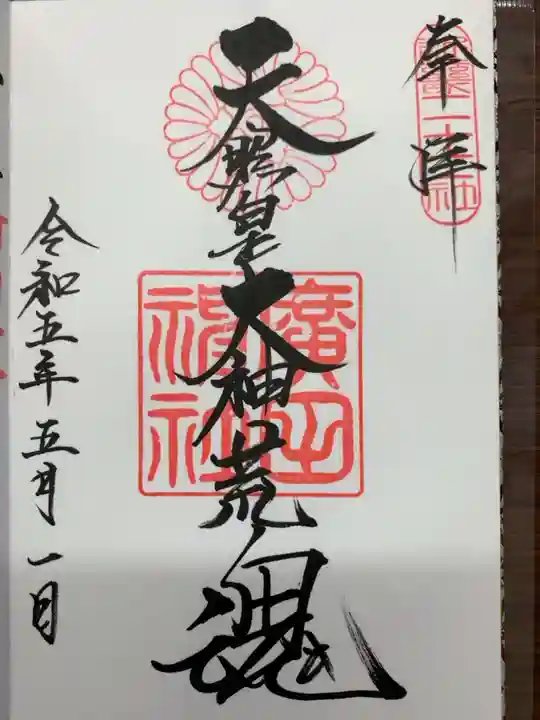 奉拝
天照皇大神荒魂
廣田神社
令和五年五月一日